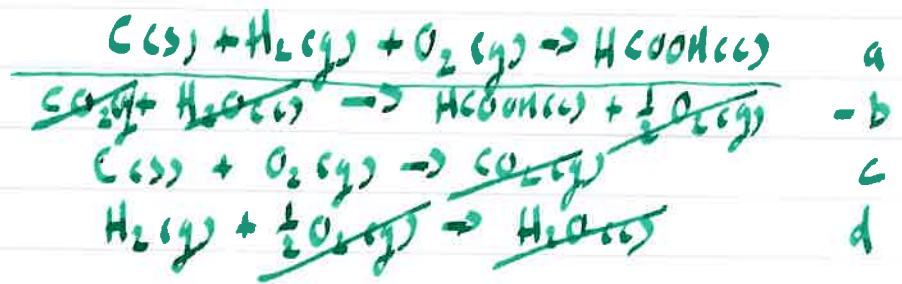 C(s) + H₂(g) + O₂(g) → HCOOH(l) a
CO₂(g) + H₂O(l) → HCOOH(l) + ½O₂(g) -b
C(s) + O₂(g) → CO₂(g) c
H₂(g) + ½O₂(g) → H₂O(l) d